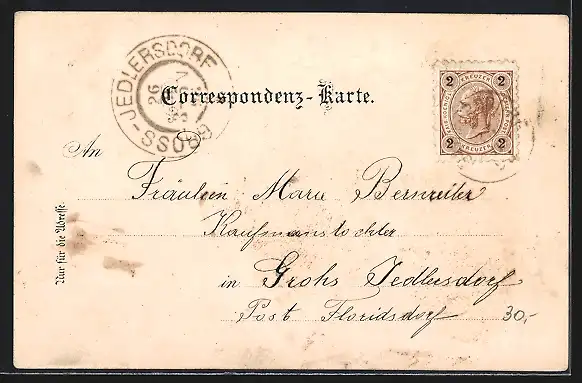 GROSS-JEDLERSDORF
26
Correspondenz-Karte.
2 KREUZER 2
2 2
An
Fräulein Marie Bernreiter
Kaufmannstochter
in Grohs Jedlersdorf
Post Floridsdorf 30,-
Nur für die Adresse.